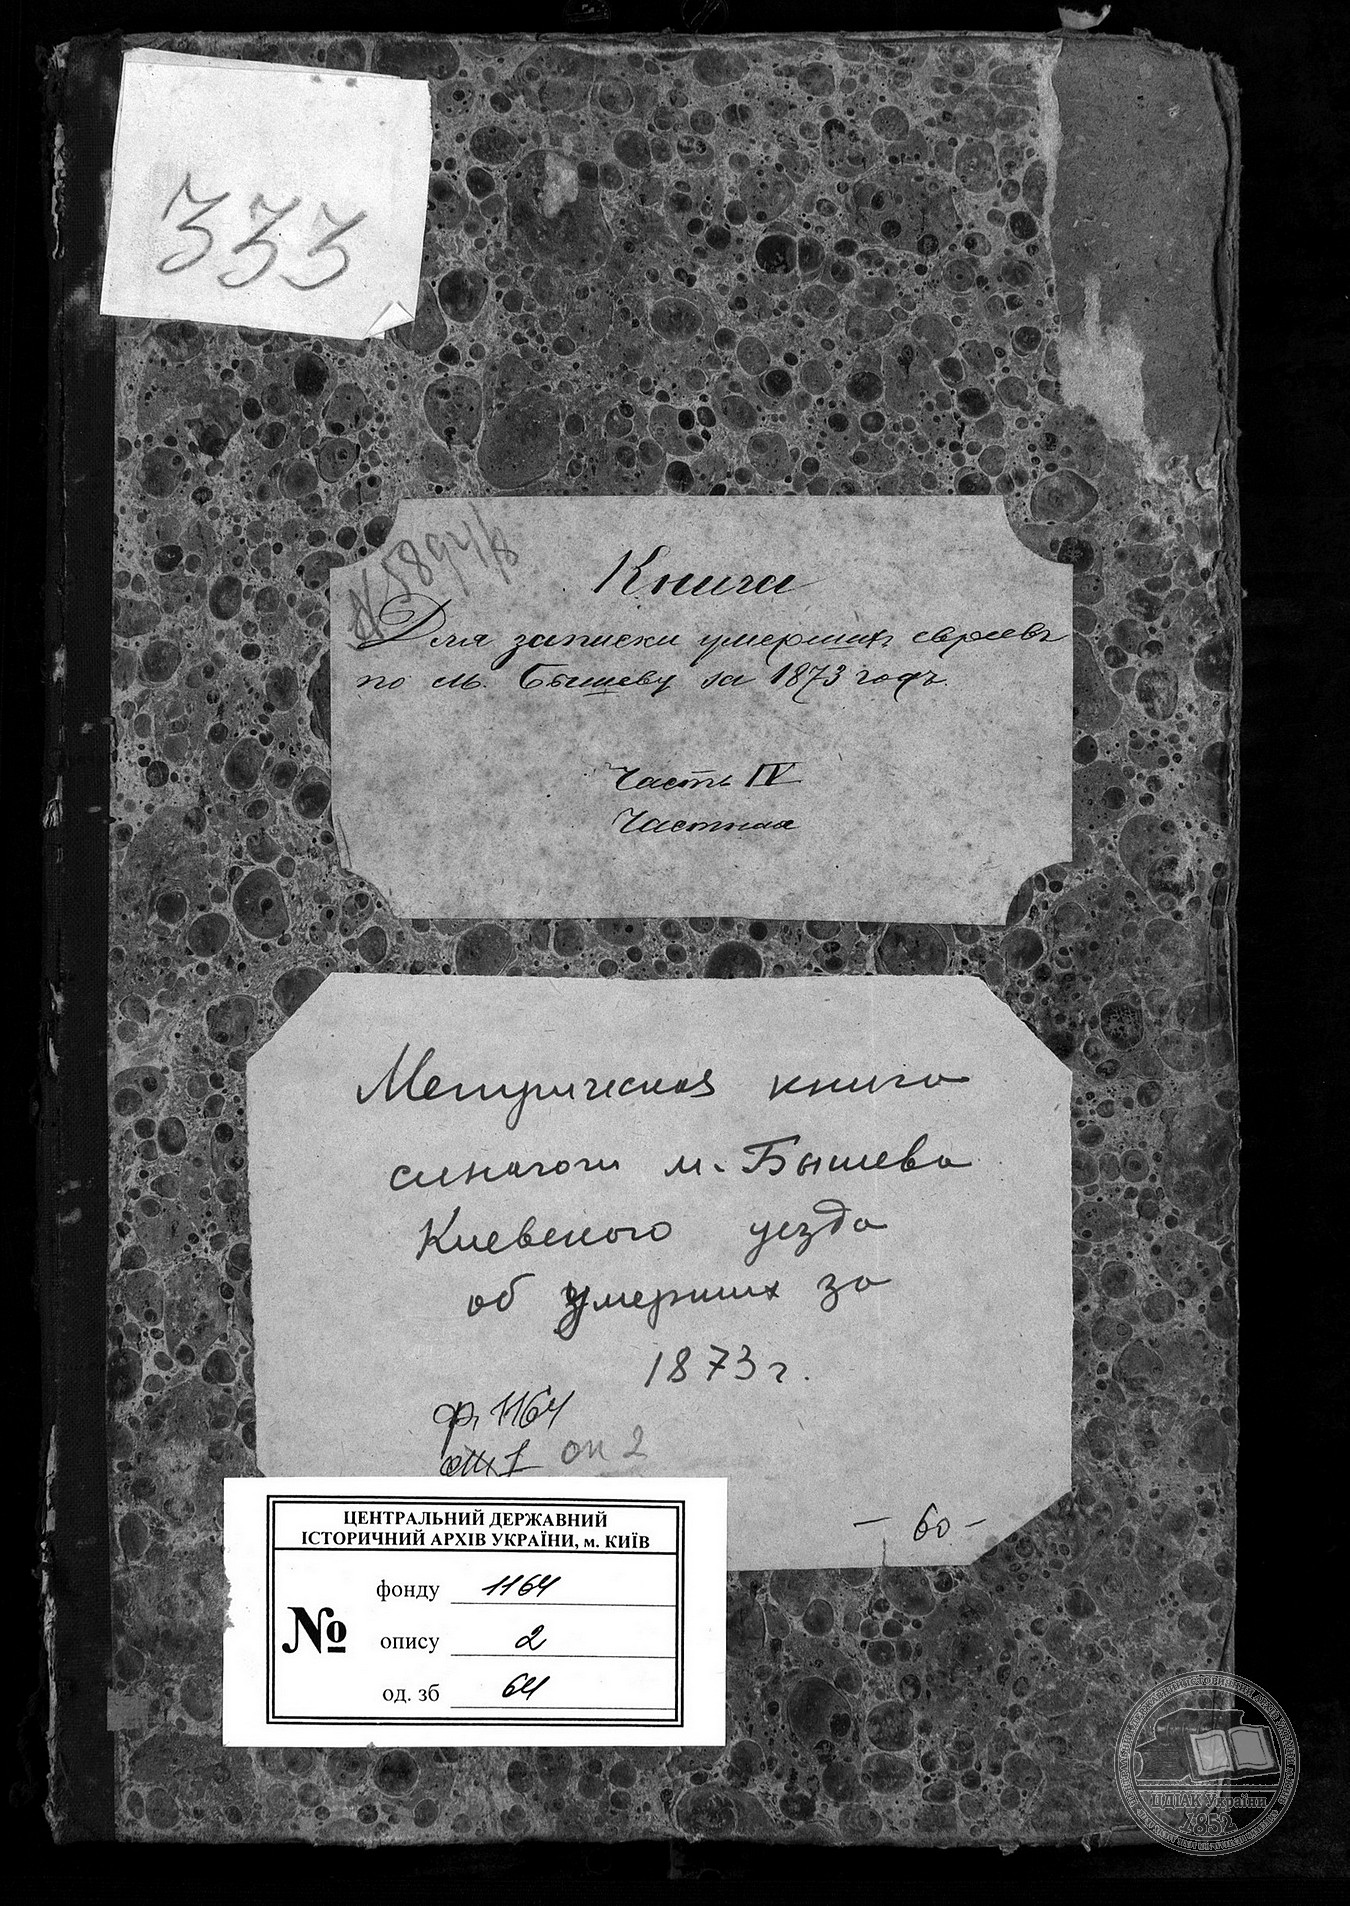 333
№5894/8
Книга
Для записки умершихъ евреевъ
по м. Бышеву за 1873 годъ.
Часть IV
Частная
Метрическая книга
синагоги м. Бышева
Киевского уезда
об умерших за
1873 г.
ф. 1164
оп. 1 оп 2
- 60 -
ЦЕНТРАЛЬНИЙ ДЕРЖАВНИЙ
ІСТОРИЧНИЙ АРХІВ УКРАЇНИ, м. КИЇВ
№
фонду 1164
опису 2
од. зб 64
ЦДІАК України
1852